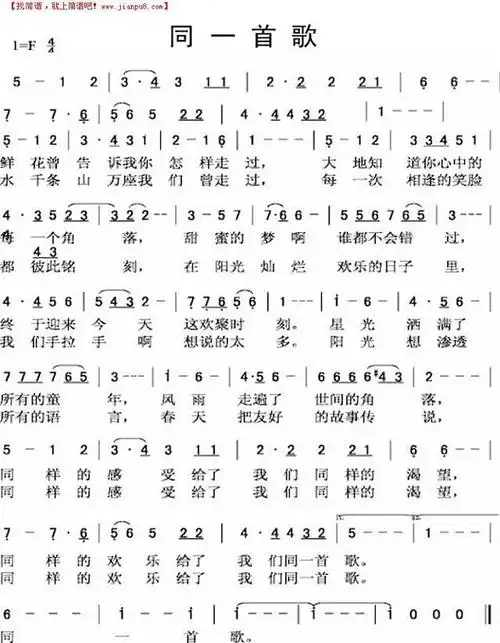 【找简谱，就上简谱吧！www.jianpu8.com】
同一首歌
1=F 4/4
5 - 1 2 | 3 · 4 3 11 | 2 · 2 2 21 | 6 6 - - |
7 - 7 · 6 | 565 22 | 4 · 4432 | 1 - - - |
5 - 12 | 3 · 431 | 2 - 16 | 1 - - - | 5 - 12 | 33451 |
鲜花曾告诉我你怎样走过， 大地知道你心中的
水千条山万座我们曾走过， 每一次相逢的笑脸
4 · 3523 | 322 · | 3 - 5 - | 3 - 2 · 3 | 7 · 66 - | 556765 | 3 - - - |
每一个角落， 甜蜜的梦啊谁都不会错过，
4 3
都彼此铭刻， 在阳光灿烂欢乐的日子里，
终于迎来今天这欢聚时刻。星光洒满了
我们手拉手啊想说的太多。阳光想渗透
7777765
所有的童年，风雨走遍了世间的角落，
所有的语言，春天把友好的故事传说，
5 - 1 2 | 3 · 4 3 11 | 2 · 2 2 21 | 6 6 - - |
同样的感受给了我们同样的渴望，
同样的感受给了我们同样的渴望，
7 - 7 · 6 | 565 22 | 4 · 4432 | 5 - - - | 1 - - - |
同样的欢乐给了我们同一首歌。
同样的欢乐给了我们同一首歌。
同一首歌。